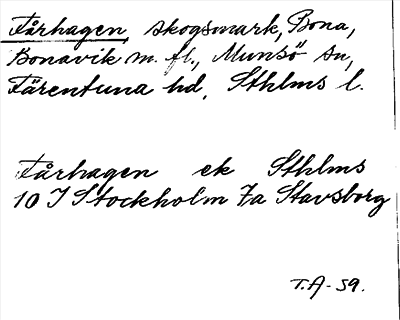 Fårhagen, skogsmark, Bona,
Bonavik m. fl., Munsö sn,
Färentuna hd, Sthlms l.
Fårhagen ek Sthlms
10 I Stockholm 7a Stavsborg
T.A-59.